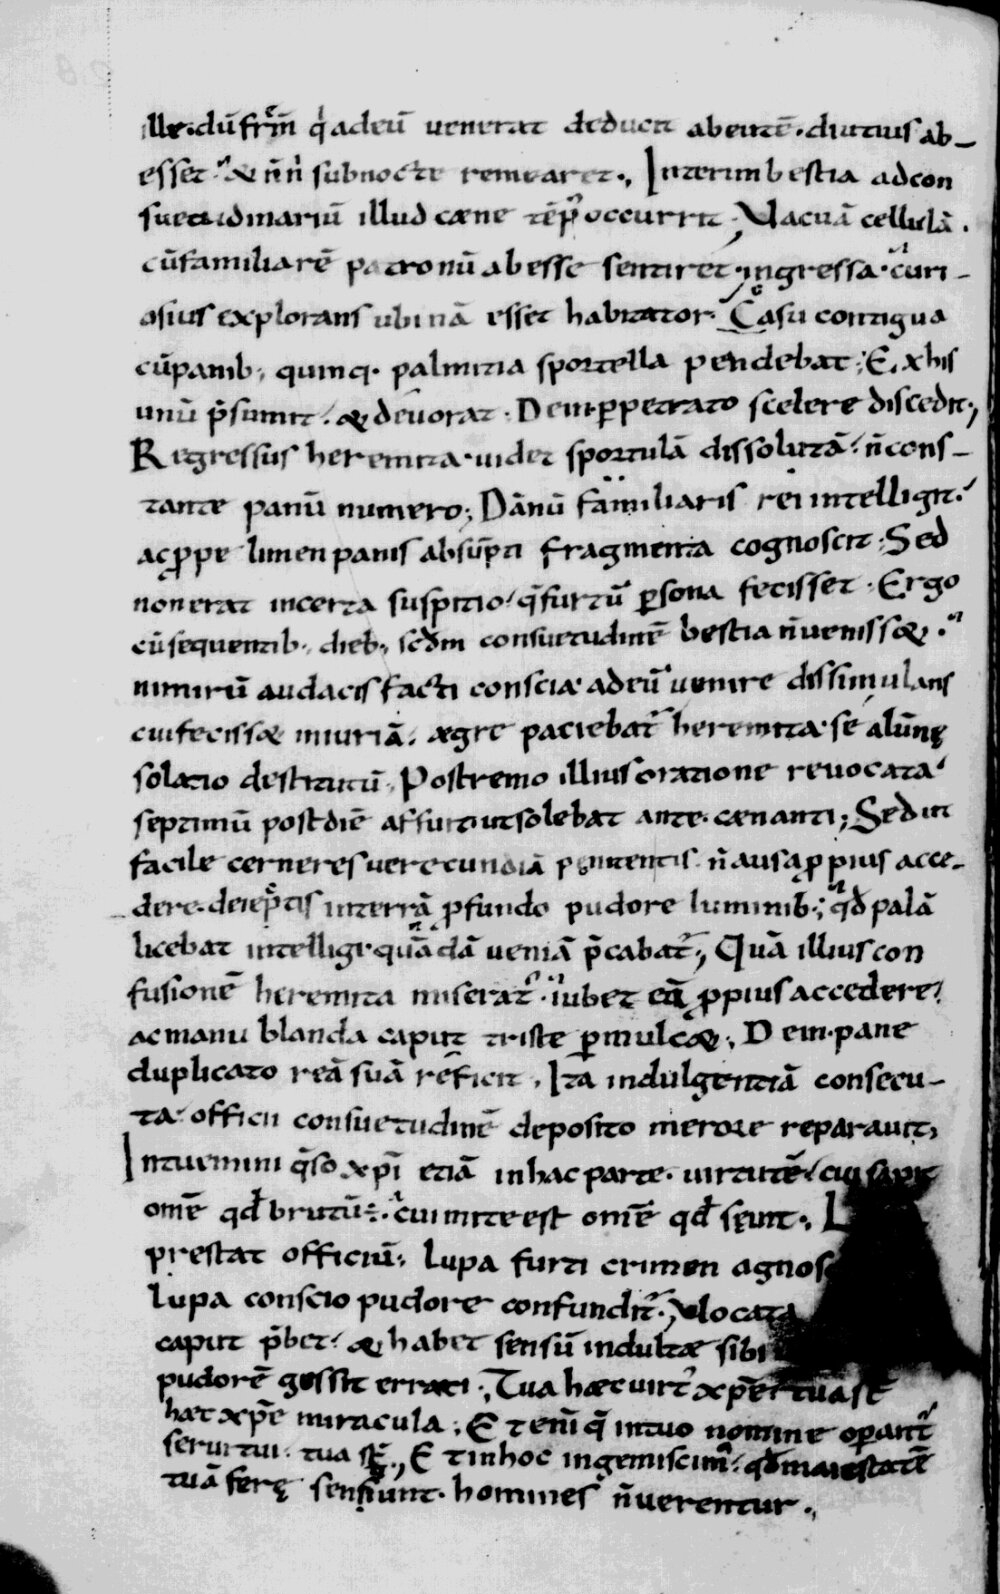 ille. dū fr̄m̄ q̇ adeū venerat deducit abeuntē. diutius ab-
esset. & n̄n̄ subnocte remearet., Interim bestia adcon
suetudinariū illud cæne tēp̄ occurrit. Vacuā cellulā.
cū familiarē patronū abesse sentiret. ingressa. curi-
osius explorans ubinā esset habitator. Casu contigua
cū panib; quinq. palmitia sportella pendebat; Ex his
unū p̄sumit. & devorat. Dein. ꝑpetrato scelere discedit;
Regressus heremita. videt sportulā dissolutā. n̄ cons-
tante panū numero; Dānū familiaris rei intelligit.
ac ꝓpe limen panis absūpti fragmenta cognoscit; Sed
non erat incerta suspitio. q̄ furtū ꝑsona fecisset. Ergo
cū sequentib; dieb; scd̄m consuetudinē bestia n̄ veniss&.
nimirū audacis facti conscia adeū venire dissimulans
cui feciss& iniuriā. ægre paciebat̄ heremita. se alūnę
solatio destitutū. Postremo illius oratione revocata
septimū post diē affuit ut solebat ante. cænanti; Sed ut
facile cerneres verecundiā penitentis n̄ ausa ꝓpius acce-
dere. deiectis interrā ꝓfundo pudore luminib; qd̄ palā
licebat intelligi. quādā veniā p̄cabat̄; Quā illius con
fusionē heremita miserat̄. iubet eā ꝓpius accedere.
ac manu blanda caput triste ꝑmulc&., Dein. pane
duplicato reā suā reficit. Ita indulgentiā consecu-
ta. officii consuetudinē deposito merore reparavit;
Intuemini q̄so xp̄i etiā in hac parte. virtutē. cui sapit
om̄e qd̄ brutū ÷. cui mite est om̄e qd̄ sęvit., L
prestat officiū; Lupa furti crimen agnos
Lupa conscio pudore confundit̄. &locata
caput p̄bet. & habet sensū indultæ sibi
pudorē gessit errati., Tua hæc virt̄ xp̄e. tua st̄
hæc xp̄e miracula; Et eni q̄ in tuo nomine operant̄
servi tui. tua st̄., Et in hoc ingemiscim̄. qd̄ maiestatē
tuā ferę sentiunt. homines n̄ verentur.,